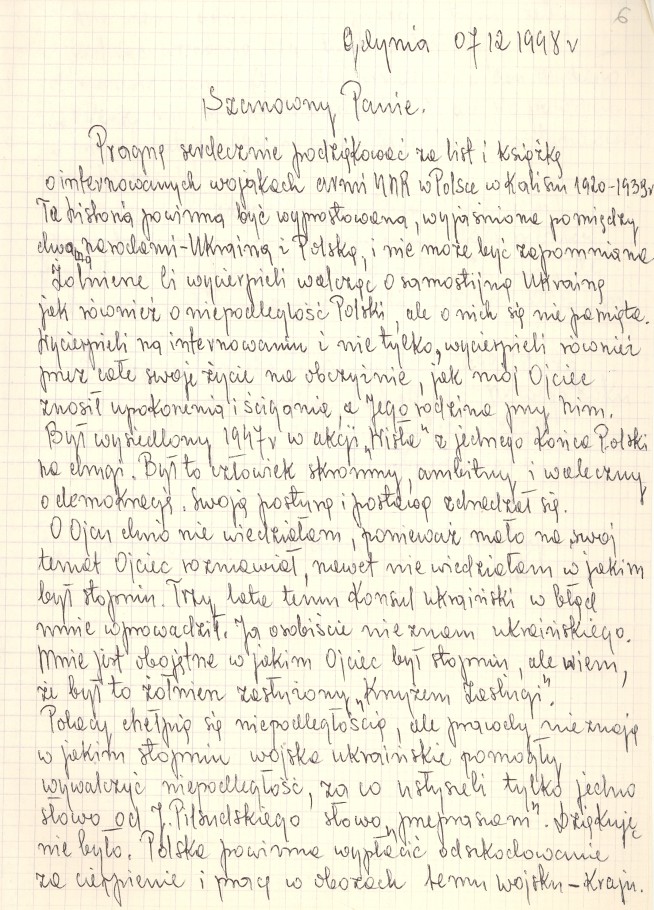 6
Gdynia 07 12 1998 r
Szanowny Panie.
Pragnę serdecznie podziękować za list i książkę
o internowanych wojakach armi UNR w Polsce w Kaliszu 1920-1939r
Ta historia powinna być wyprostowana, wyjaśniona pomiędzy
dwoma narodami - Ukrainą i Polską, i nie może być zapomniana.
Żołnierze Ci wycierpieli walcząc o samostijną Ukrainę
jak również o niepodległość Polski, ale o nich się nie pamięta.
Wycierpieli na internowaniu i nie tylko, wycierpieli również
przez całe swoje życie na obczyźnie, jak mój Ojciec
znosił upokorzenia i ścigania, a Jego rodzina przy Nim.
Był wysiedlony 1947r w akcji „Wisła" z jednego końca Polski
na drugi. Był to człowiek skromny, ambitny i waleczny
o demokrację. Swoją posturą i postawą zdradzał się.
O Ojcu dużo nie wiedziałam, ponieważ mało na swój
temat Ojciec rozmawiał, nawet nie wiedziałam w jakim
był stopniu. Trzy lata temu Konsul ukraiński w błąd
mnie wprowadził. Ja osobiście nie znam ukraińskiego.
Mnie jest obojętne w jakim Ojciec był stopniu, ale wiem,
że był to żołnierz zasłużony „Krzyżem Zasługi".
Polacy chełpią się niepodległością, ale prawdy nie znają
w jakim stopniu wojska ukraińskie pomogły
wywalczyć niepodległość, za co usłyszeli tylko jedno
słowo od J. Piłsudskiego słowo „przepraszam". Dziękuję
nie było. Polska powinna wypłacić odszkodowanie
za cierpienie i pracę w obozach temu wojsku - Kraju.